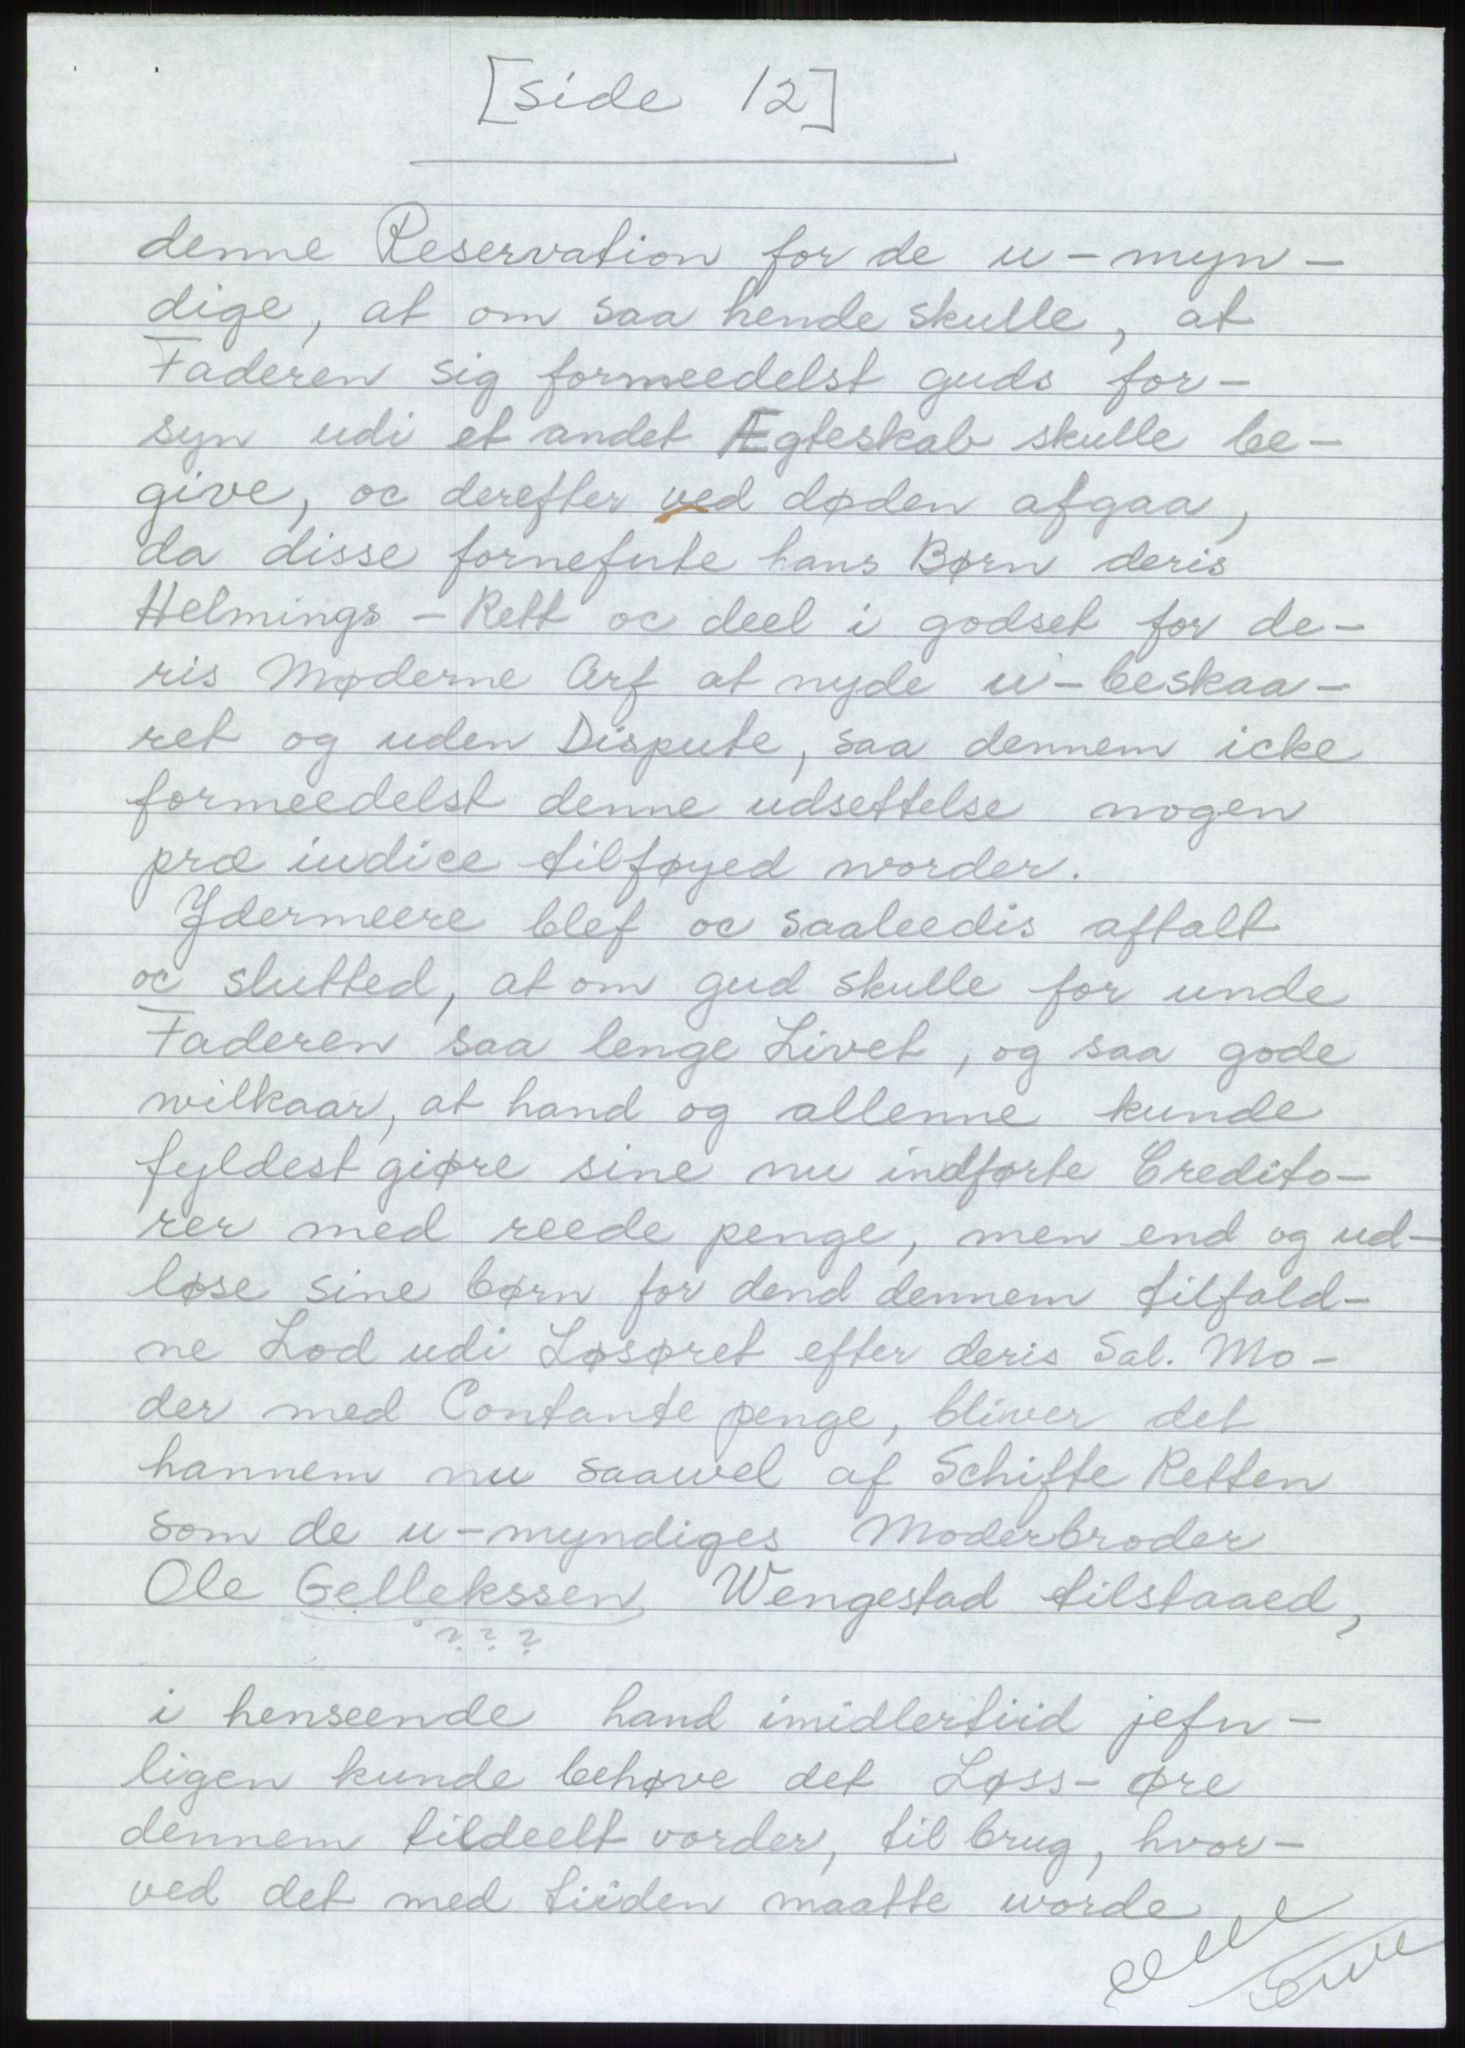 [side 12]
denne Reservation for de u-myn-
dige, at om saa hende skulle, at
Faderen sig formeedelst guds for-
syn udi et andet Ægteskab skulle be-
give, oc derefter ved døden afgaa,
da disse fornefnte hans Børn deris
Helmings-Rett oc deel i godset for de-
ris Møderne Arf at nyde u-beskaa-
ret og uden Dispute, saa dennem icke
formeedelst denne udsettelse nogen
præ iudice tilføyed worder.
Ydermeere blef oc saaleedis aftalt
oc slutted, at om gud skulle for unde
Faderen saa lenge Livet, og saa gode
wilkaar, at hand og allenne kunde
fyldest giøre sine nu indførte Credito-
rer med reede penge, men end og ud-
løse sine børn for dend dennem tilfald-
ne Lod udi Løsøret efter deris Sal. Mo-
der med Contante penge, bliver det
hannem nu saawel af Schifte Retten
som de u-myndiges Moderbroder
Ole Gellekssen Wengestad tilstaaed,
???
i henseende hand imidlertiid jefn-
ligen kunde behøve det Løss-øre
dennem tildeelt vorder, til brug, hvor-
ved det med tiiden maatte worde